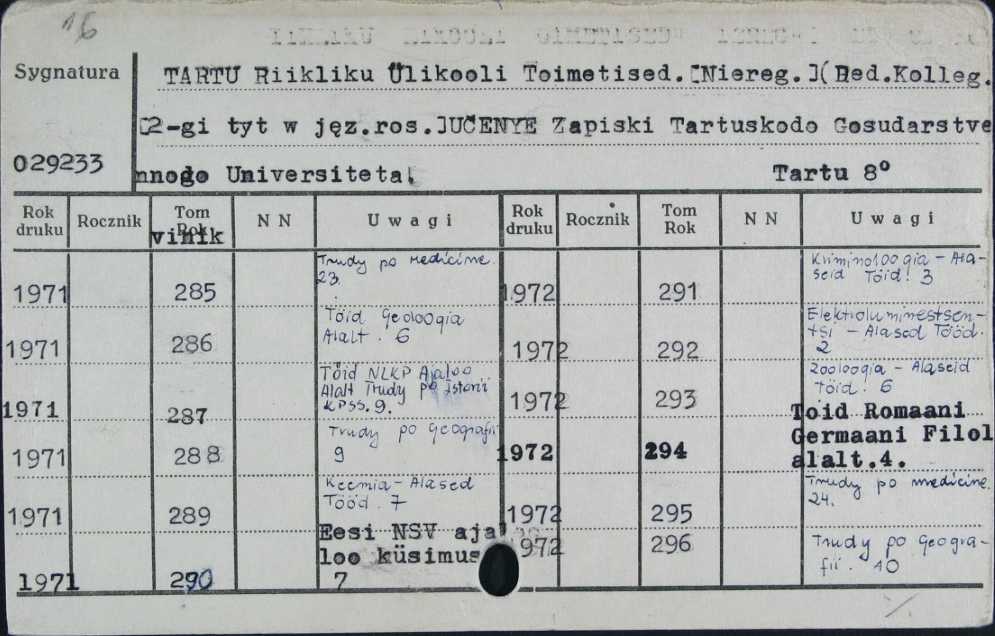 16
Sygnatura
TARTU Riikliku Ülikooli Toimetised.[Niereg.](Red.Kolleg.
[2-gi tyt w jęz.ros.]UČENYE Zapiski Tartuskodo Gosudarstve
029233
nnogo Universiteta.
Tartu 8°
Rok druku Rocznik Tom Rok N N Uwagi Rok druku Rocznik Tom Rok N N Uwagi
vihik
1971 285 Trudy po medicine. 23.
1971 286 Töid Geoloogia Alalt. 6
1971 287 Töid NLKP Ajaloo Alalt Trudy po istorii KPSS. 9.
1971 288 Trudy po Geografii 9
1971 289 Keemia-Alased Tööd. 7
1971 290 Eesi NSV aja loo küsimus 7
1972 291 Kriminoloogia - Alaseid Töid! 3
1972 292 Elektroluminestsentsi - Alased Tööd. 2
1972 293 Zooloogia - Alaseid Töid! 6
1972 294 Toid Romaani Germaani Filol alalt.4.
1972 295 Trudy po medicine. 24.
1972 296 Trudy po Geografii. 10